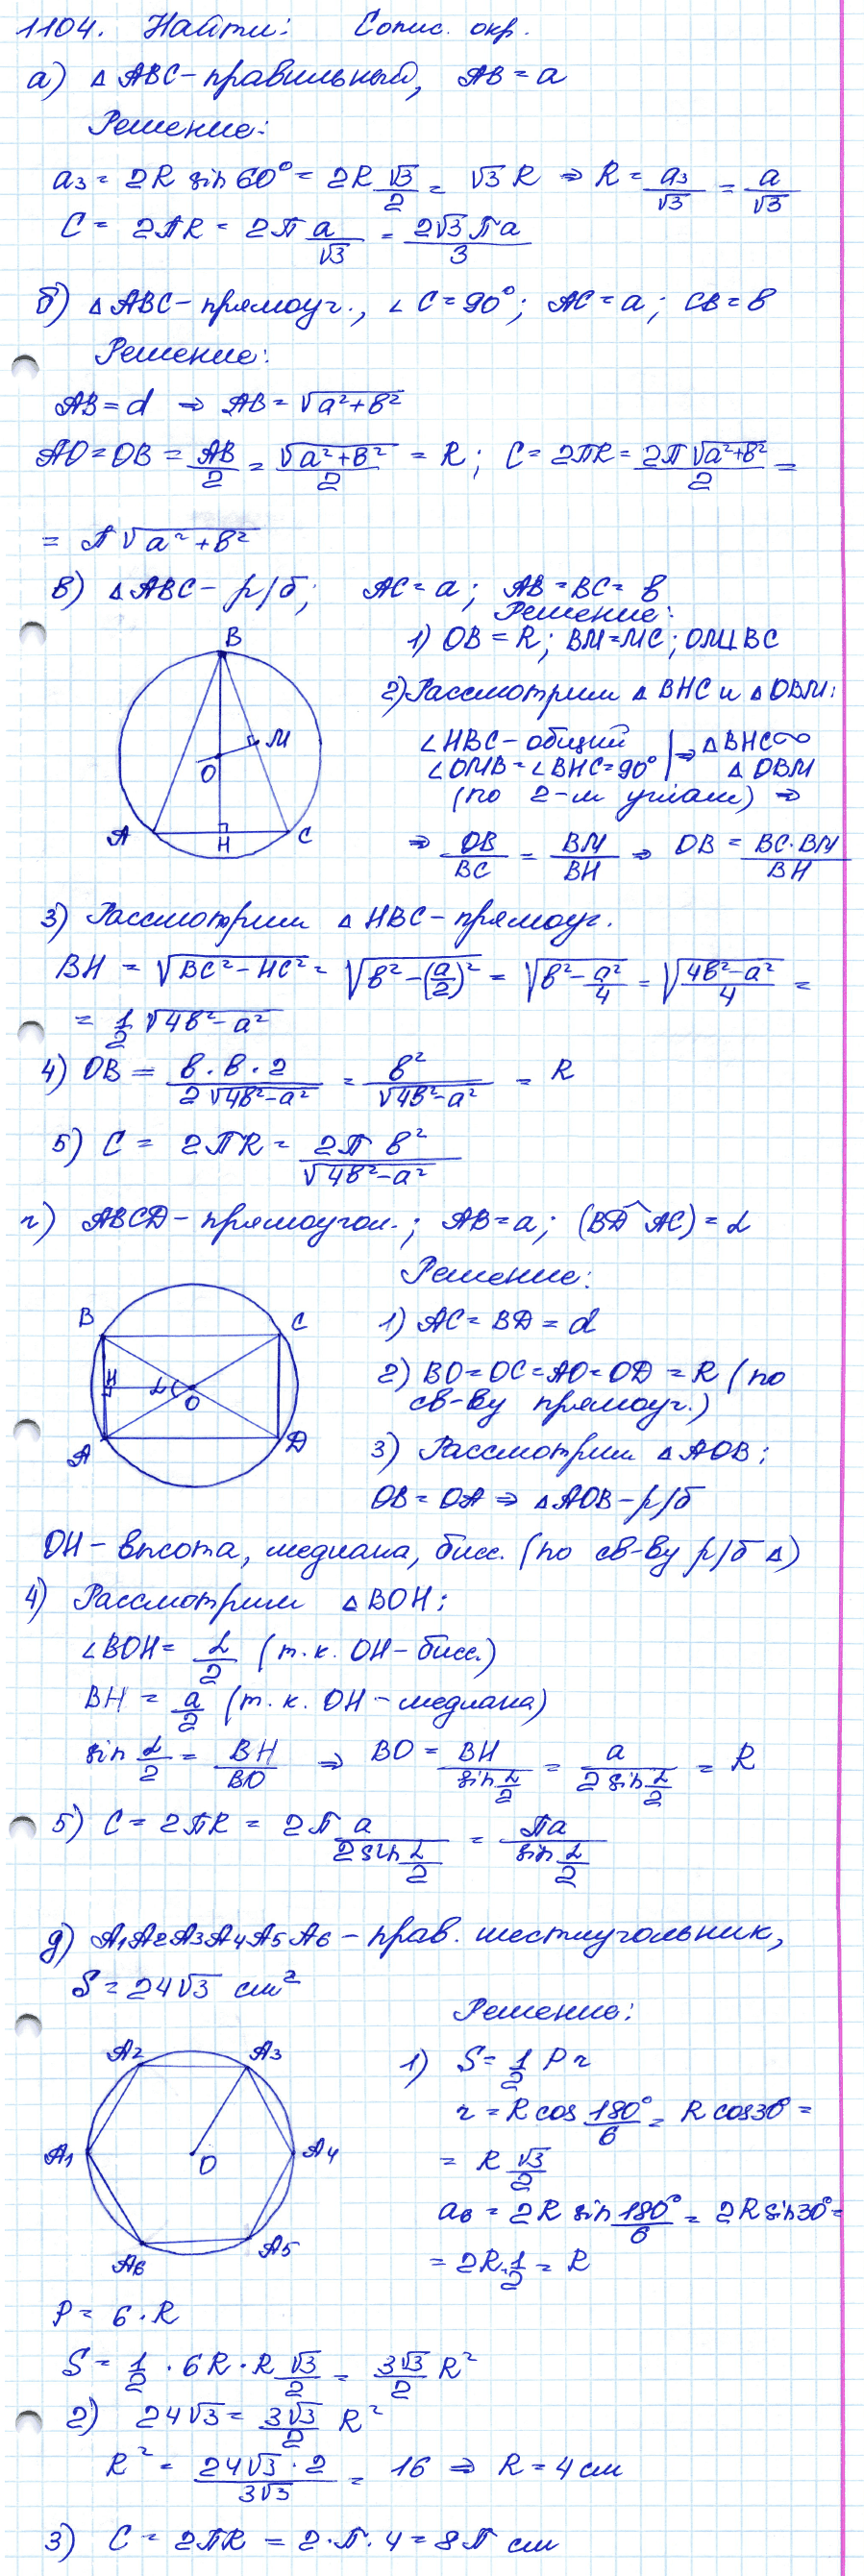 1104. Найти: Cопис. окр.
а) △ABC – правильный, AB = a
Решение:
a₃ = 2R sin 60° = 2R √3/2 = √3 R ⇒ R = a₃/√3 = a/√3
C = 2πR = 2π a/√3 = 2√3πa/3
б) △ABC – прямоуг., ∠C = 90°; AC = a; CB = в
Решение:
AB = d ⇒ AB = √(a² + в²)
AO = OB = AB/2 = √(a² + в²)/2 = R; C = 2πR = 2π√(a² + в²)/2 =
= π√(a² + в²)
в) △ABC – р/б; AC = a; AB = BC = в
Решение:
1) OB = R; BM = MC; OM⊥BC
2) Рассмотрим △BHC и △OBM:
∠HBC – общий
∠OMB = ∠BHC = 90° | ⇒ △BHC ∞ △OBM
(по 2-м углам) ⇒
⇒ OB/BC = BM/BH ⇒ OB = BC·BM/BH
B
M
O
A
H
C
3) Рассмотрим △HBC – прямоуг.
BH = √(BC² – HC²) = √(в² – (a/2)²) = √(в² – a²/4) = √((4в² – a²)/4) =
= 1/2 √(4в² – a²)
4) OB = в·в·2/(2√(4в² – a²)) = в²/√(4в² – a²) = R
5) C = 2πR = 2π в²/√(4в² – a²)
г) ABCD – прямоугол.; AB = a; (BD^AC) = α
Решение:
1) AC = BD = d
2) BO = OC = AO = OD = R (по
св-ву прямоуг.)
3) Рассмотрим △AOB;
OB = OA ⇒ △AOB – р/б
B
C
H
α
O
A
D
OH – высота, медиана, бисс. (по св-ву р/б △)
4) Рассмотрим △BOH;
∠BOH = α/2 (т.к. OH – бисс.)
BH = a/2 (т.к. OH – медиана)
sin α/2 = BH/BO ⇒ BO = BH/sin α/2 = a/(2 sin α/2) = R
5) C = 2πR = 2π a/(2 sin α/2) = πa/sin α/2
д) A₁A₂A₃A₄A₅A₆ – прав. шестиугольник,
S = 24√3 см²
Решение:
1) S = 1/2 P r
r = R cos 180°/6 = R cos 30° =
= R √3/2
a₆ = 2R sin 180°/6 = 2R sin 30° =
= 2R·1/2 = R
A₂
A₃
A₁
O
A₄
A₆
A₅
P = 6·R
S = 1/2 · 6R · R √3/2 = 3√3/2 R²
2) 24√3 = 3√3/2 R²
R² = 24√3·2/3√3 = 16 ⇒ R = 4 см
3) C = 2πR = 2·π·4 = 8π см